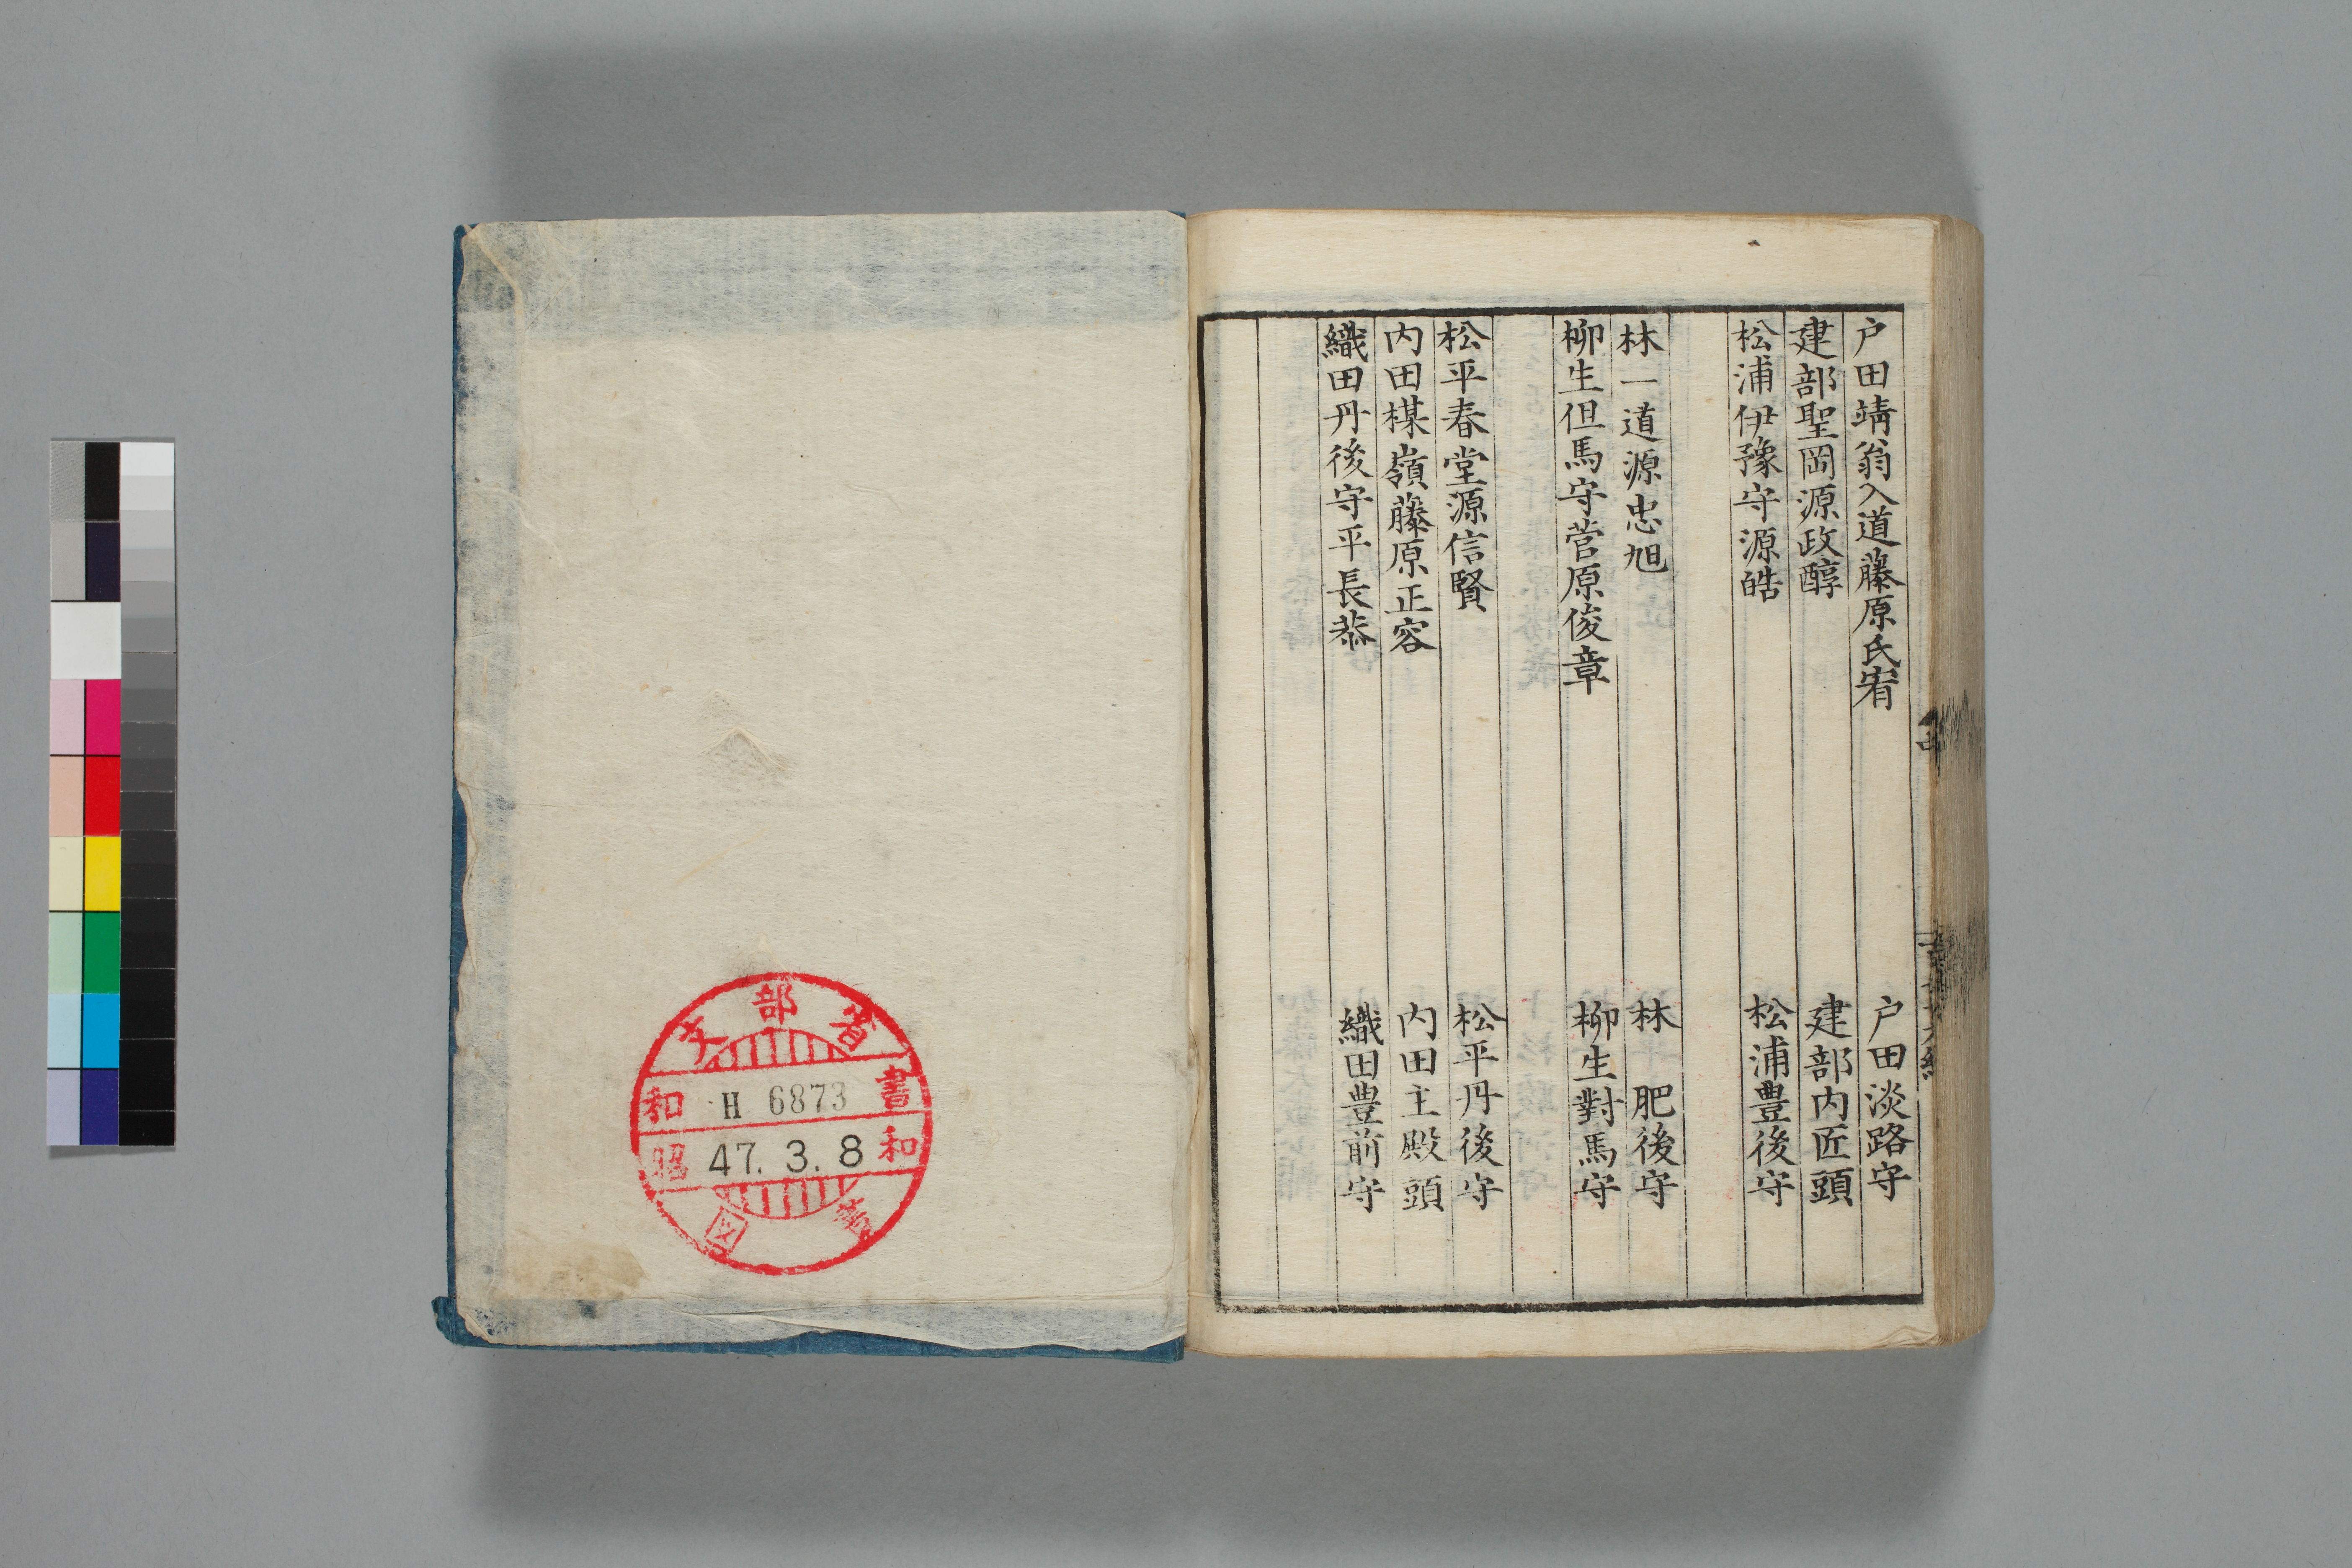 戸田靖翁入道藤原氏宥 戸田淡路守
建部聖岡源政醇 建部内匠頭
松浦伊豫守源皓 松浦豊後守
林一道源忠旭 林肥後守
柳生但馬守菅原俊章 柳生對馬守
松平春堂源信賢 松平丹後守
内田楳嶺藤原正容 内田主殿頭
織田丹後守平長恭 織田豊前守
文部省
和 H 6873 書
昭 47. 3. 8 和
図